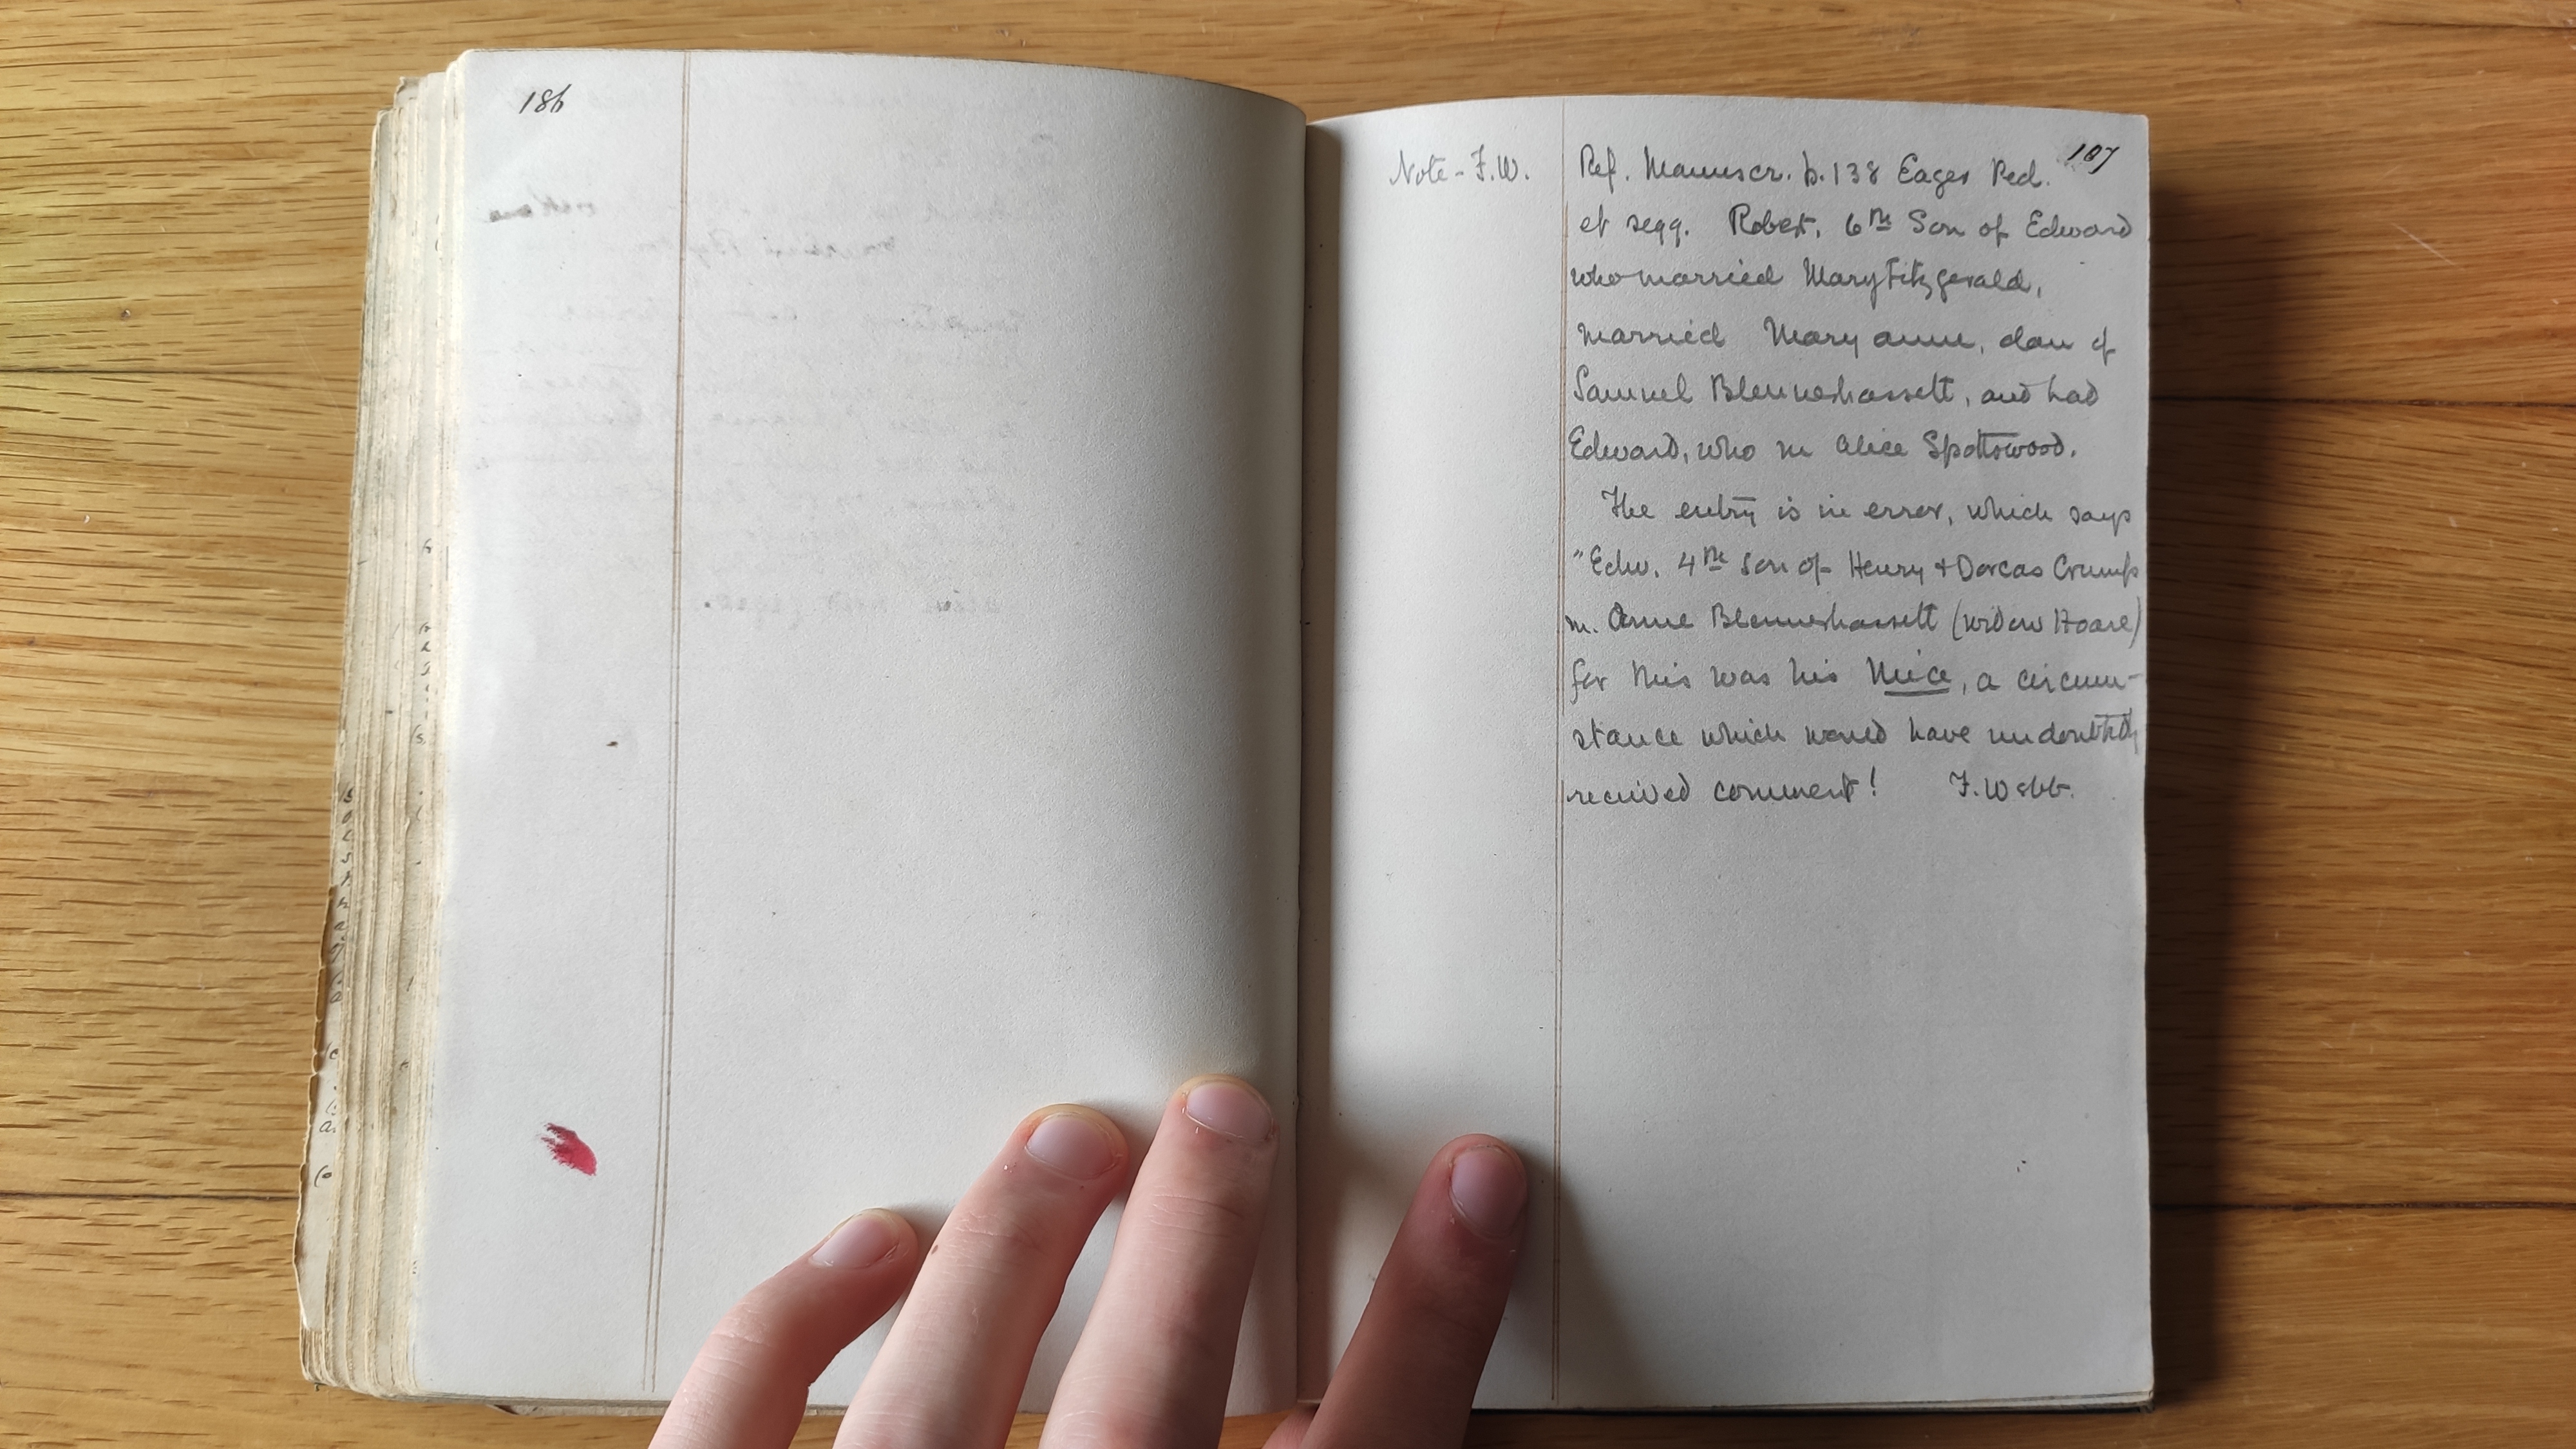 186
187
Note - F.W.
Ref. Manuscr. p. 138 Eager Ped.
et seqq. Robert, 6th Son of Edward
who married Mary Fitzgerald,
married Mary anne, dau of
Samuel Blennerhassett, and had
Edward, who m Alice Spottswood.
The entry is in error, which says
"Edw. 4th son of Henry + Dorcas Crump
m. Anne Blennerhassett (widow Hoare)
for this was his niece, a circum-
stance which would have undoubtedly
received comment! F. Webb.